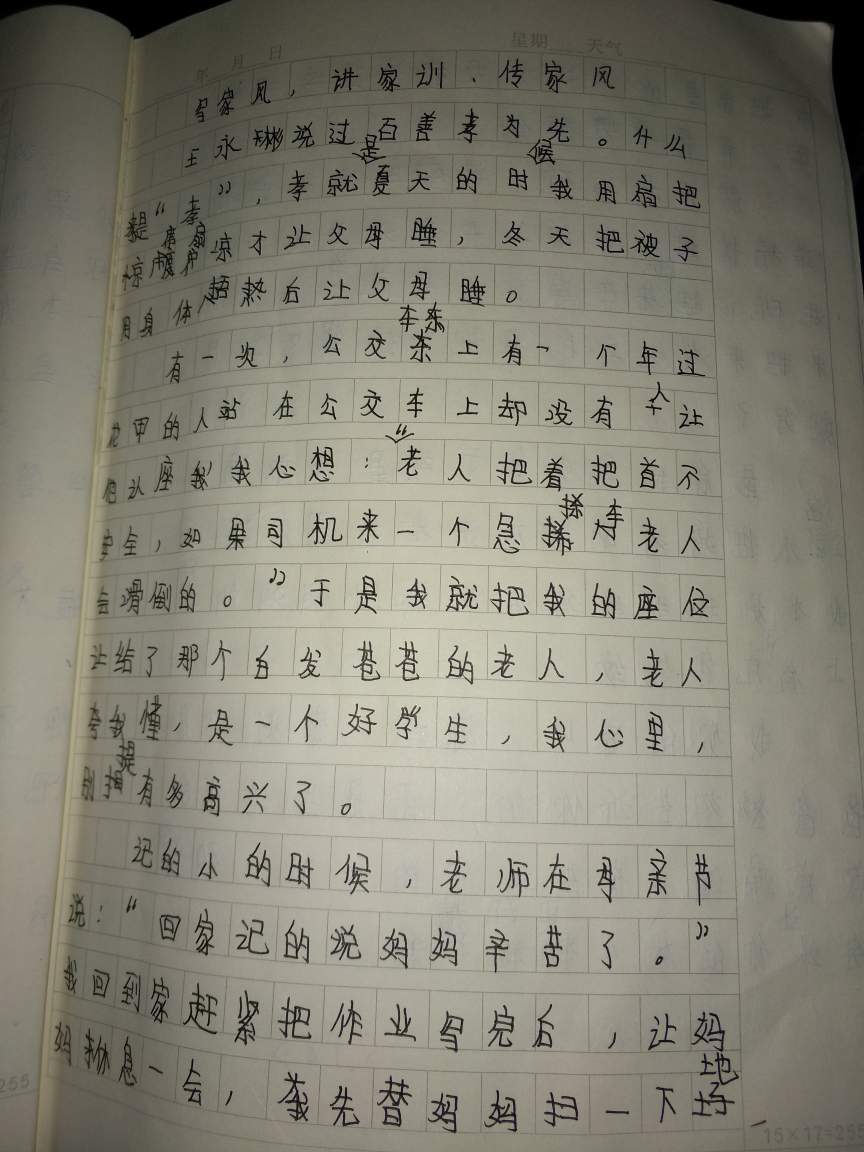 年 月 日 星期 天气
写家风,讲家训、传家风
王永彬说过百善孝为先。什么
是“孝”,孝就是夏天的时候我用扇把
凉才让父母睡,冬天把被子
用身体捂热后让父母睡。
有一次,公交车上有一个年过
花甲的人站在公交车上却没有人让
他认座我心想:“老人把着把首不
安全,如果司机来一个急 老人
会滑倒的。”于是我就把我的座位
让给了那个白发苍苍的老人,老人
夸我懂,是一个好学生,我心里,
别提有多高兴了。
记的小的时候,老师在母亲节
说:“回家记的说妈妈辛苦了。”
我回到家赶紧把作业写完后,让妈
妈休息一会,我先替妈妈扫一下地
255
15×17=255